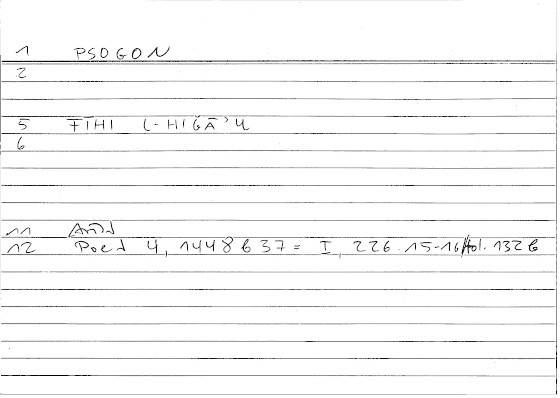 1 PSOGON
2
5 FĪHI L-HIǦĀʾU
6
11 Arist
12 Poet 4, 1448b37 = I, 226.15-16/fol. 132b